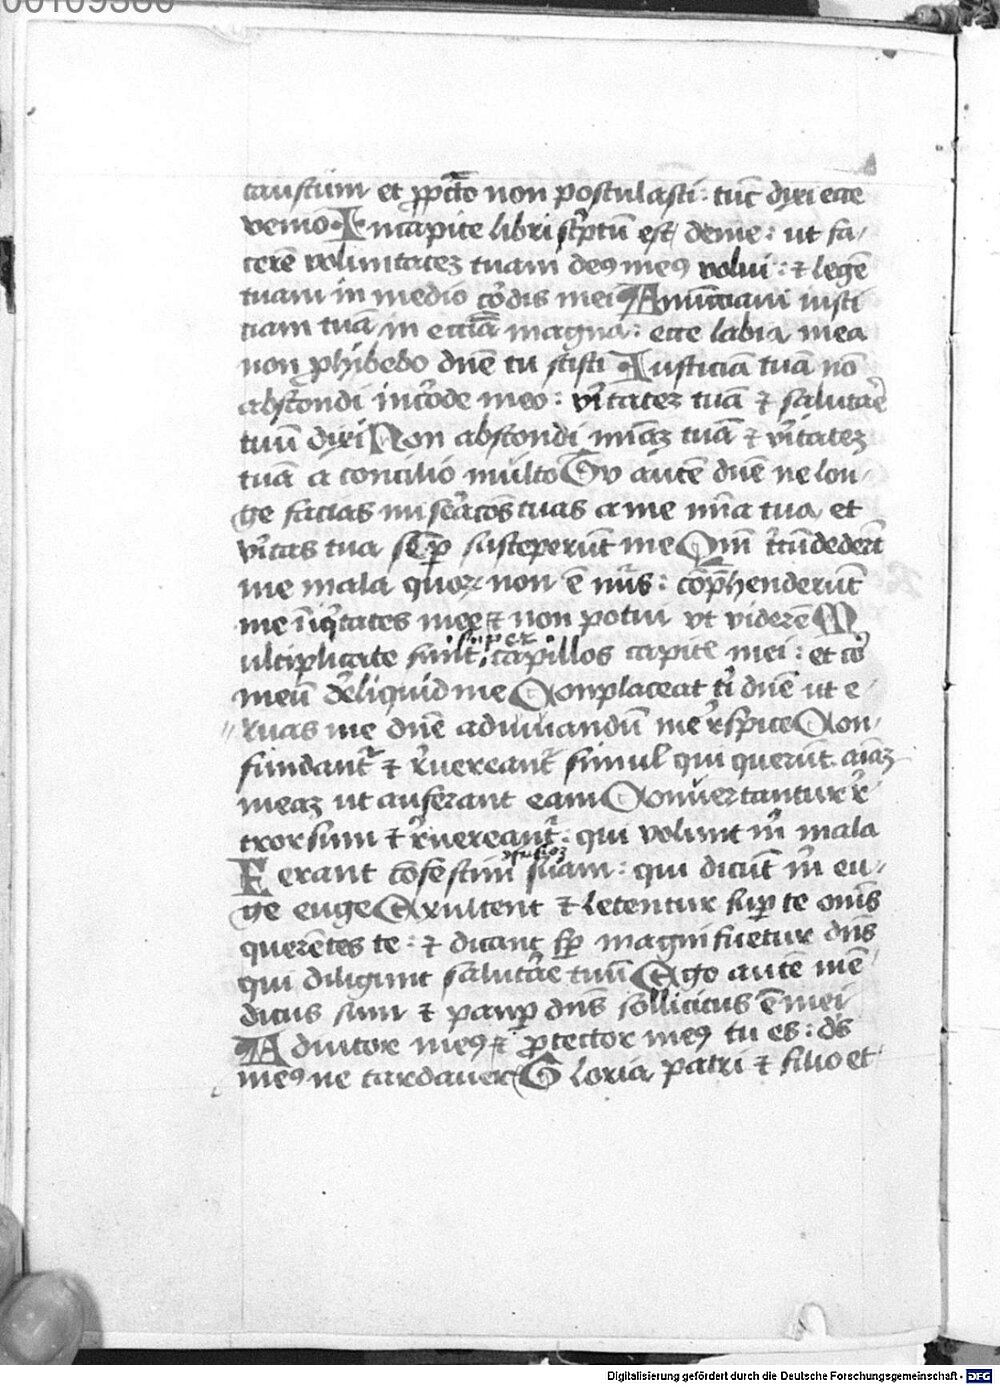 00109386
caustum et ꝓpcc̄to non postulasti: tūc dixi ecce
venio. In capite libri sc̓ptū est de me: ut fa/
cerē voluntatez tuam deꝰ meꝰ volui: ⁊ legē
tuam in medio co᷑dis mei Annūciavi iusti
ciam tuā in eccīa magna: ecce labia mea
non ꝓhibebo dn̄e tu scisti Iusticiā tuā nō
abscondi in co᷑de meo: vi᷑tatez tuā ⁊ salutae᷑
tuū dixi Non abscondi mīaz tuā ⁊ vi᷑tatez
tuā a concilio multo Tu autē dn̄e ne lon/
ge facias misea᷑cōs tuas a me mīa tua et
vi᷑tas tua semꝑ susceperūt me Qm̄ cc̓ūdederūt
me mala quoꝝ non ē nūs: cōp̄henderūt
me īiq̓tates mee ⁊ non potui vt viderē M
ultiplicate sunt super capillos capitꝭ mei: et co᷑
meū de᷑liquid me Conplaceat ti᷑ dn̄e ut e/
ruas me dn̄e ad iuuandū me r᷑spice Con/
fundant᷑ ⁊ r᷑uereant᷑ simul qui querūt aīaz
meaz ut auferant eam Conuertantur r᷑
trorsum ⁊ r᷑uereant᷑: qui volunt m̄ mala
Ferant cōfestim ꝯfusioꝫ suam: qui dicūt m̄ eu/
ge euge Exultent ⁊ letentur suꝑ te om̄s
querētes te: ⁊ dicant sp̄ magnificetur dn̄s
qui diligunt saluta᷑e tuū Ego autē mē
dicus sum ⁊ pauꝑ dn̄s sollicitus ē mei
Adiutor meꝰ ⁊ ꝓtector meꝰ tu es: d̄s
meꝰ ne tardauer᷑ Gloria patri ⁊ filio et
Digitalisierung gefördert durch die Deutsche Forschungsgemeinschaft - DFG